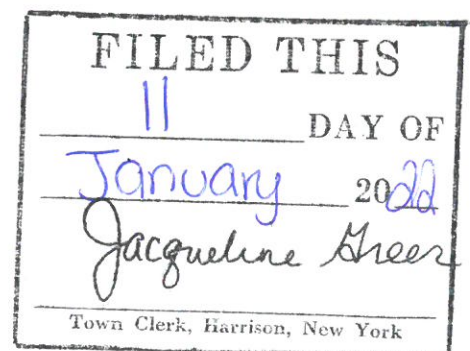 FILED THIS
11 DAY OF
January 2022
Jacqueline Greer
Town Clerk, Harrison, New York